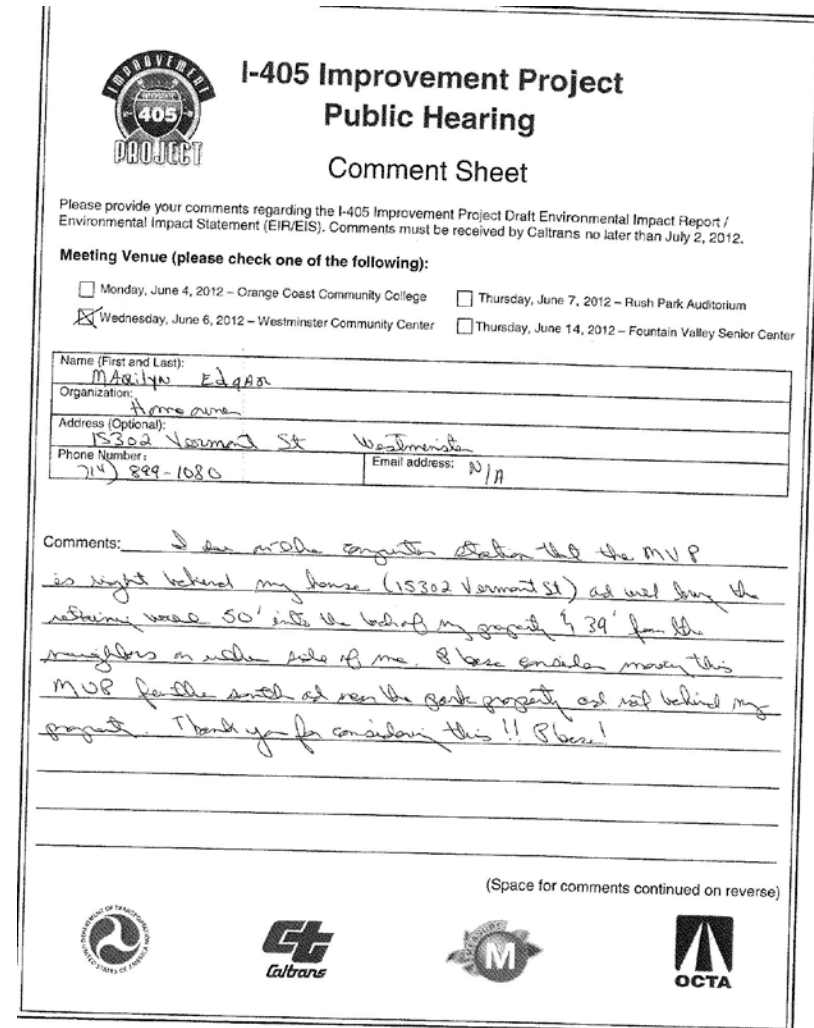 IMPROVEMENT
INTERSTATE
405
PROJECT
I-405 Improvement Project
Public Hearing
Comment Sheet
Please provide your comments regarding the I-405 Improvement Project Draft Environmental Impact Report /
Environmental Impact Statement (EIR/EIS). Comments must be received by Caltrans no later than July 2, 2012.
Meeting Venue (please check one of the following):
Monday, June 4, 2012 – Orange Coast Community College
Thursday, June 7, 2012 – Rush Park Auditorium
Wednesday, June 6, 2012 – Westminster Community Center
Thursday, June 14, 2012 – Fountain Valley Senior Center
Name (First and Last):
MARilyN EdgAR
Organization:
Homeowner
Address (Optional):
15302 Vermont St Westminster
Phone Number:
714) 899-1080
Email address: N/A
Comments: I see the computer station that the MVP
is right behind my house (15302 Vermont St) ad will bring the
retaining wall 50' into the back of my property & 39' from the
neighbors on either side of me. Please consider moving this
MVP further south ad near the park property ad not behind my
property. Thank you for considering this!! Please!
(Space for comments continued on reverse)
DEPARTMENT OF TRANSPORTATION
UNITED STATES OF AMERICA
Ct
Caltrans
MEASURE
M
OCTA